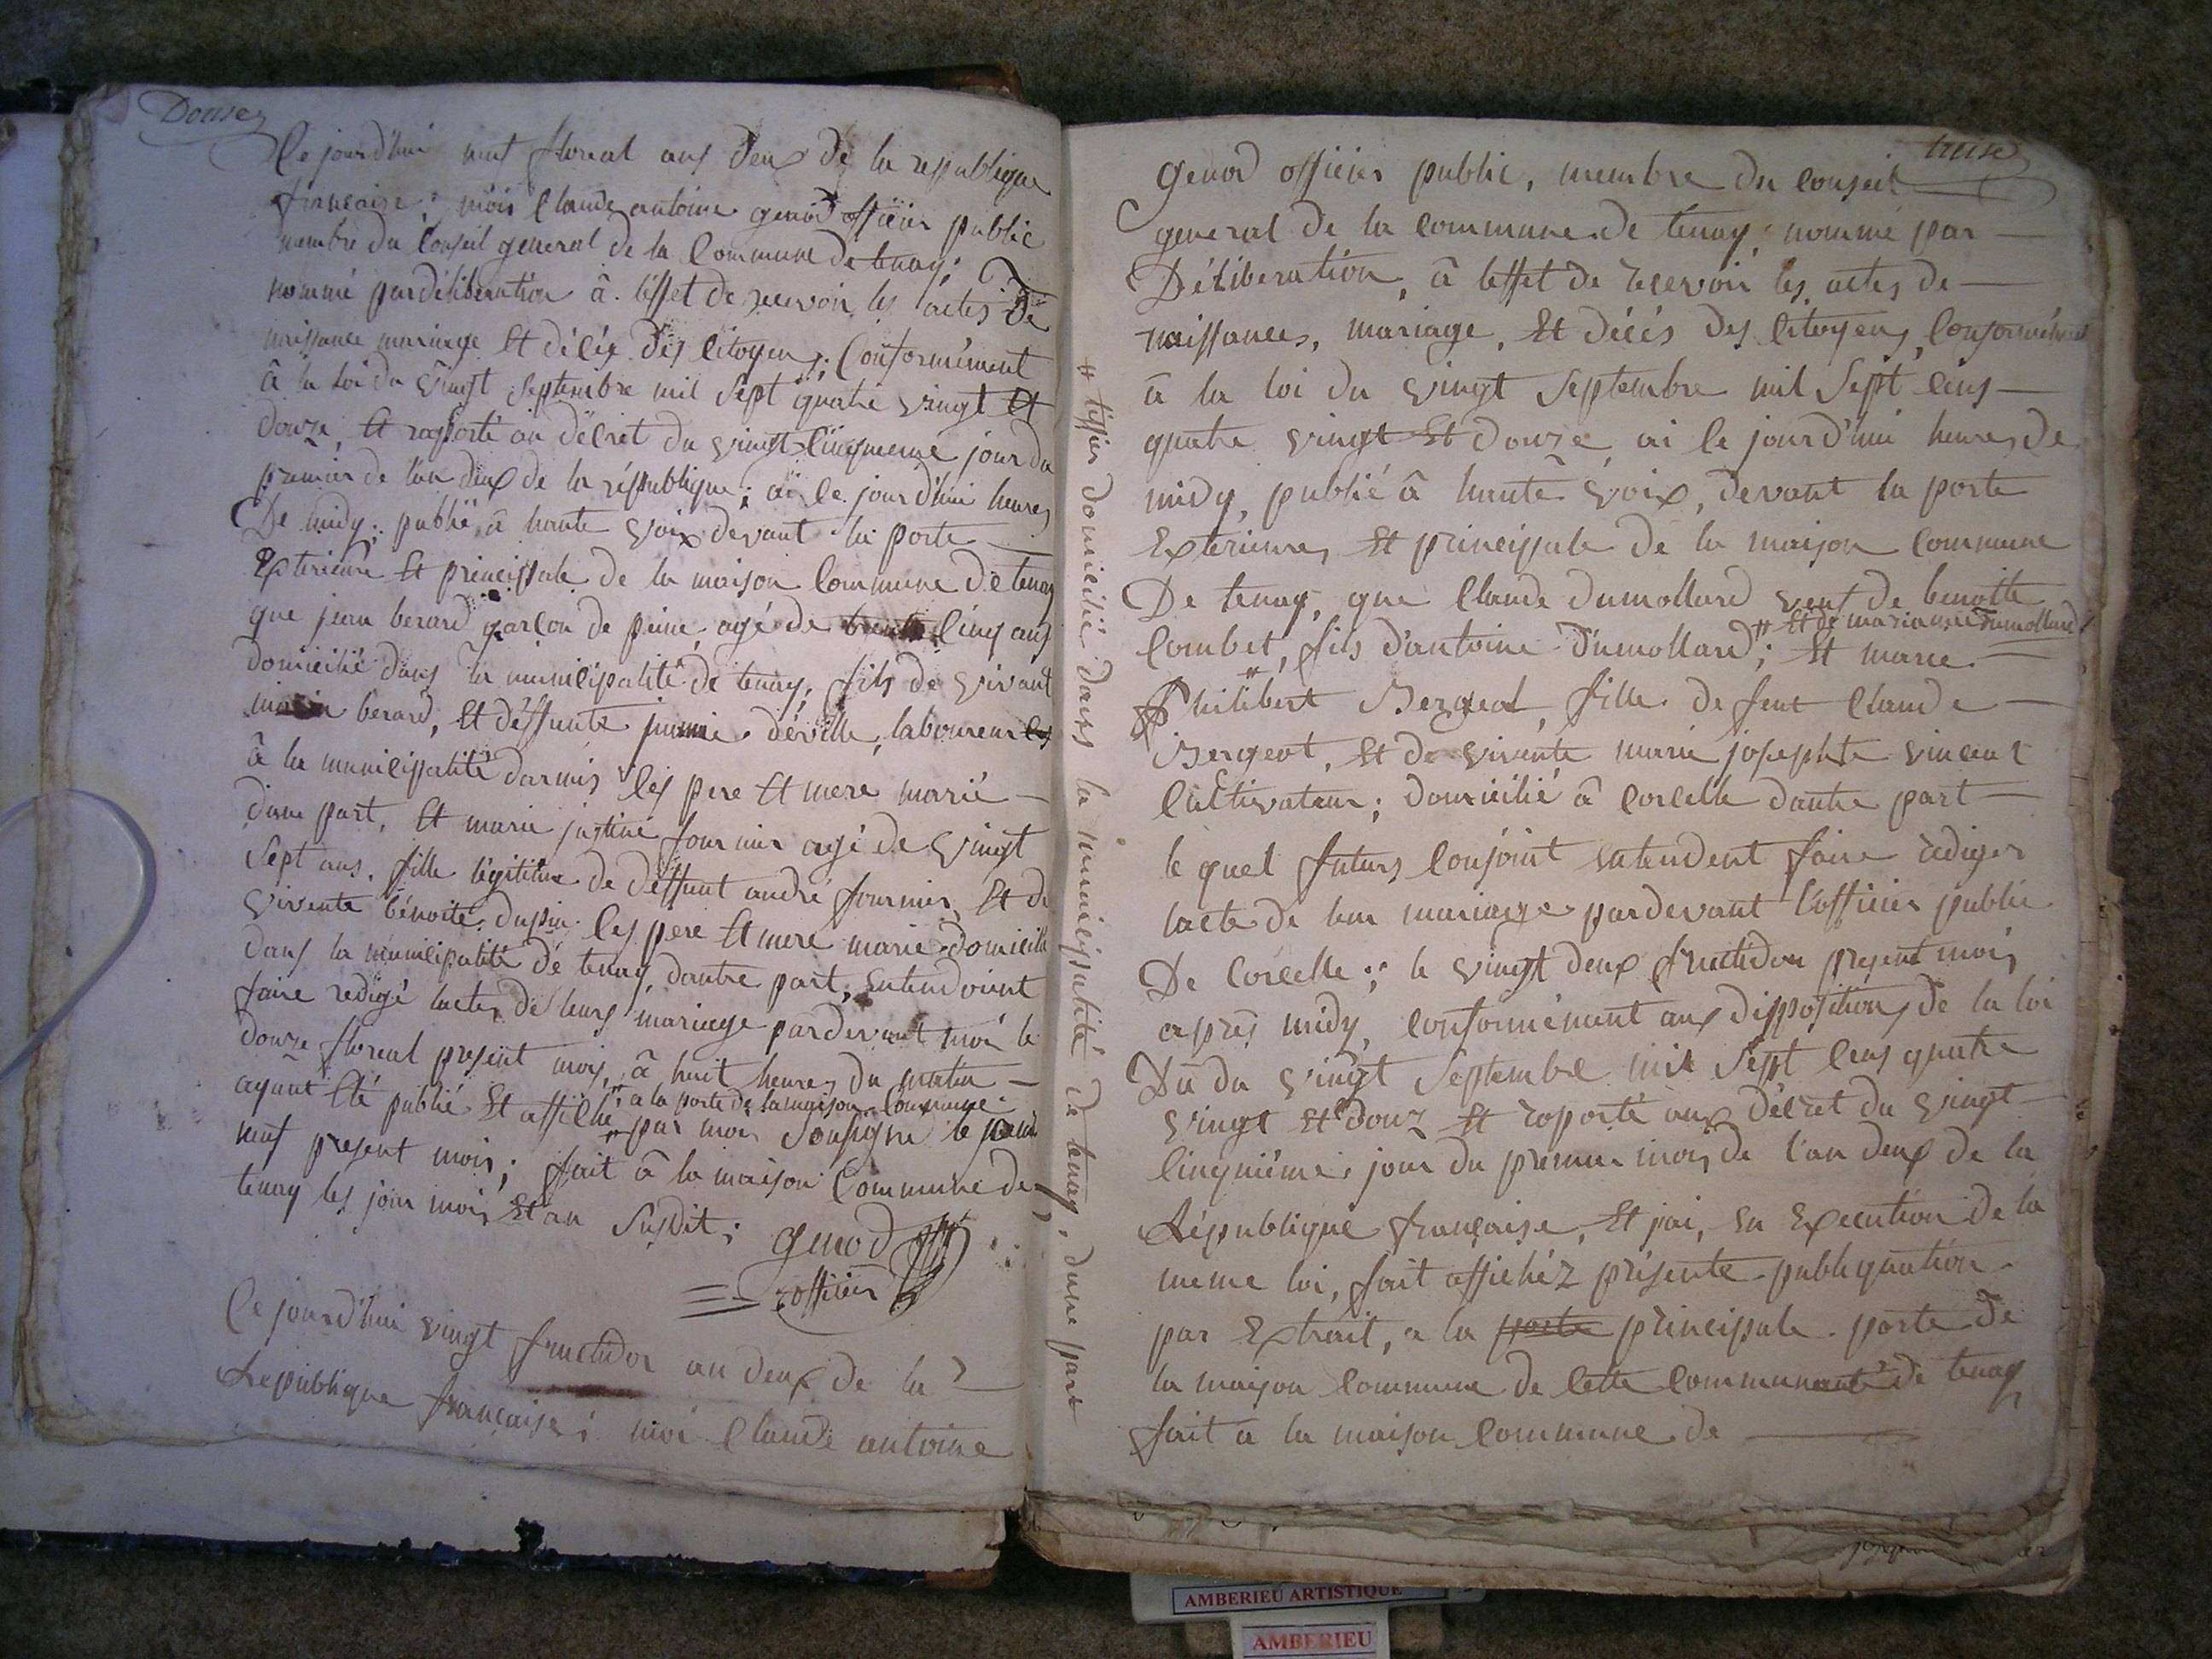 Douze
Ce jourd'hui neuf floreal ans deux de la republique
francaise; moi Claude antoine genod officier public
membre du Conseil general de la Commune de tenay;
nommé par déliberation â l'effet de recevoir les actes de
naissance mariage Et décés des Citoyens; Conformément
â la Loi du vingt septembre mil sept quatre vingt Et
douze, Et raporté au décret du vingt Cinquieme jour du
premier de l'an deux de la république; ai le jourd'hui heures
De midy; publié, â haute voix devant la porte
Exterieure Et principale de la maison Commune de tenay
que jean berard garcon de peine, agé de trente Cinq ans
domicilié dans la municipalité de tenay, fils de vivant
berard, Et deffunte déville, laboureur
â la municipalité darmis les pere Et mere marié
dune part, Et marie justine fournier agé de vingt
Sept ans, fille légitime de déffunt andré fournier, Et de
vivente bénoite dupin les pere Et mere marié domicilié
dans la municipalité de tenay, dautre part, entendoient
faire redigé lacte, de leurs mariage pardevant moi le
douze floreal present mois, â huit heures du matin
ayant été publié Et affiché
# a la porte de la maison Commune
# par moi Soussigné le
neuf present mois; fait â la maison Commune de
tenay les jour mois Et an Susdit;
genod
officier
Ce jourd'hui vingt fructidor an deux de la
Republique française; moi Claude antoine
# tissier domicilié dans la municipalité de tenay, dune part
treise
genod officier public, membre du conseil
general de la commune de tenay; nommé par
Déliberation, â leffet de recevoir les actes de
naissances, mariage, Et décés des Citoyens, Conformément
â la loi du vingt septembre mil sept cens
quatre vingt Et douze, ai le jourd'hui heures de
midy, publié â haute voix, devant la porte
Exterieure, Et principale de la maison commune
De tenay, que Claude dumollard veuf de benoitte
Combet, fils d'antoine dumollard; # Et de marianne dumollard Et marie
# Philibert Bergeot, fille de feut Claude
Bergeot, Et de vivente marie josephte vincent
Cultivateur; domicilié â Corcelle dautre part
le quel futurs Conjoint entendent faire rediger
lacte de leur mariage pardevant lofficier public
De Corcelle; le vingt deux fructidor present mois
apres midy, conformément aux disposition de la loi
Du du vingt Septembre mil sept cens quatre
vingt Et douz Et raporté aux Décret du vingt
Cinquième jour du premier mois de l'an deux de la
République française, Et jai, en Execution de la
meme loi, fait affichéz présente publiquation
par Extrait, a la porte principale porte de
la maison Commune de Cette Communauté de tenay
fait a la maison Commune de
AMBERIEU ARTISTIQUE
AMBERIEU